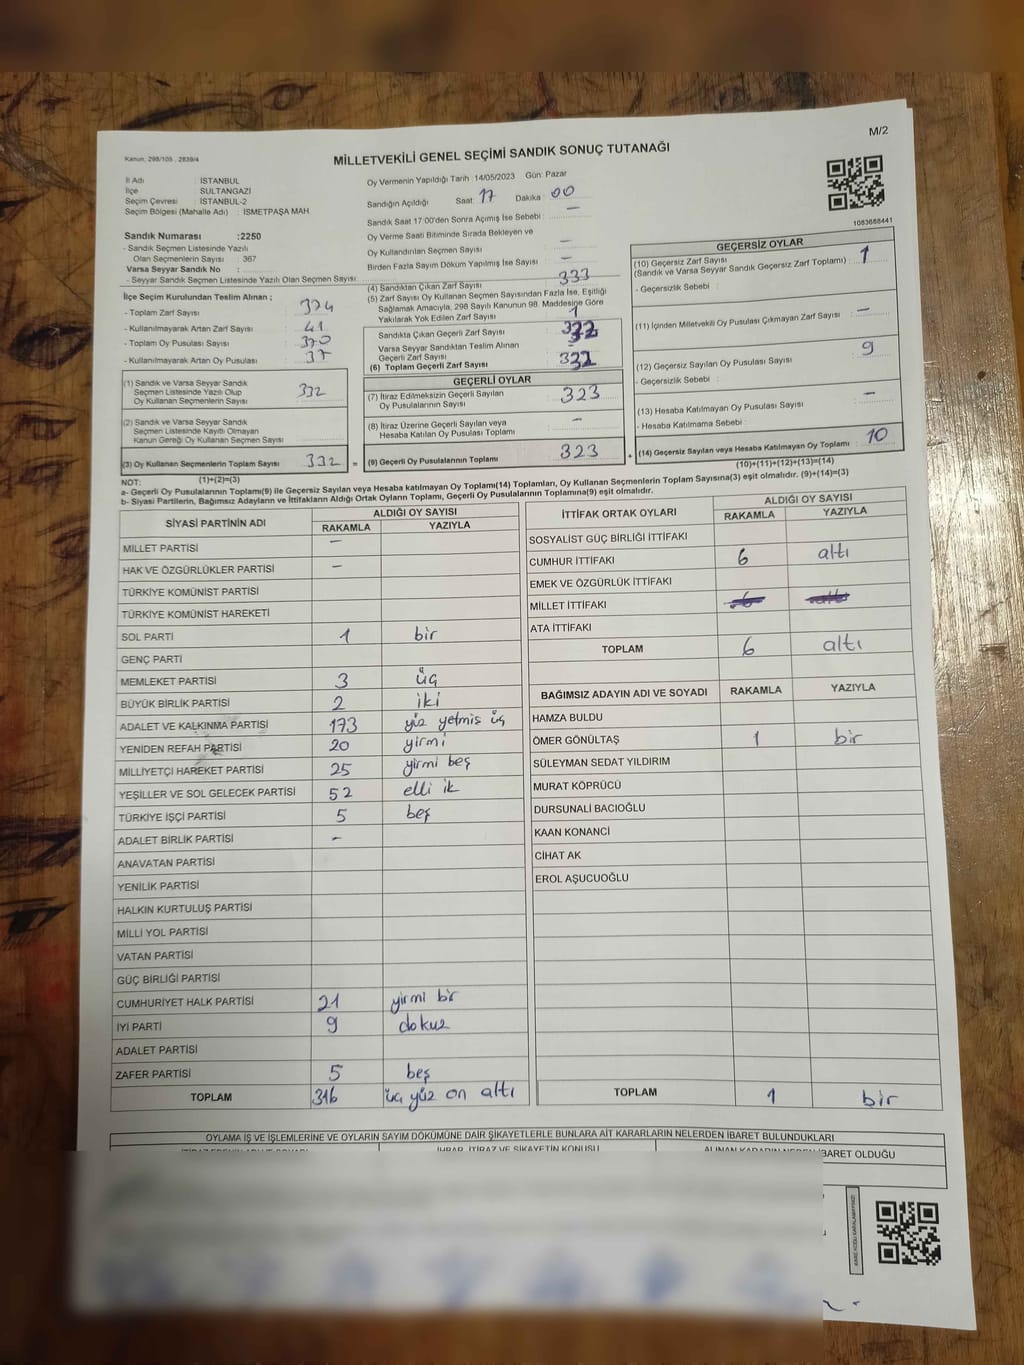 M/2
Kanun, 298/105 , 2839/4
MİLLETVEKİLİ GENEL SEÇİMİ SANDIK SONUÇ TUTANAĞI
İl Adı : İSTANBUL
İlçe : SULTANGAZİ
Seçim Çevresi : İSTANBUL-2
Seçim Bölgesi (Mahalle Adı) : İSMETPAŞA MAH
Sandık Numarası :2250
- Sandık Seçmen Listesinde Yazılı
Olan Seçmenlerin Sayısı : 367
Varsa Seyyar Sandık No :
- Seyyar Sandık Seçmen Listesinde Yazılı Olan Seçmen Sayısı
İlçe Seçim Kurulundan Teslim Alınan ;
- Toplam Zarf Sayısı : 374
- Kullanılmayarak Artan Zarf Sayısı : 41
- Toplam Oy Pusulası Sayısı : 370
- Kullanılmayarak Artan Oy Pusulası : 37
(1) Sandık ve Varsa Seyyar Sandık
Seçmen Listesinde Yazılı Olup
Oy Kullanan Seçmenlerin Sayısı : 332
(2) Sandık ve Varsa Seyyar Sandık
Seçmen Listesinde Kayıtlı Olmayan
Kanun Gereği Oy Kullanan Seçmen Sayısı :
(3) Oy Kullanan Seçmenlerin Toplam Sayısı : 332
(1)+(2)=(3)
Oy Vermenin Yapıldığı Tarih :14/05/2023 Gün: Pazar
Sandığın Açıldığı Saat: 17 Dakika : 00
Sandık Saat 17:00'den Sonra Açımış İse Sebebi : —
Oy Verme Saati Bitiminde Sırada Bekleyen ve
Oy Kullandırılan Seçmen Sayısı : —
Birden Fazla Sayım Döküm Yapılmış İse Sayısı : —
(4) Sandıktan Çıkan Zarf Sayısı : 333
(5) Zarf Sayısı Oy Kullanan Seçmen Sayısından Fazla İse, Eşitliği
Sağlamak Amacıyla, 298 Sayılı Kanunun 98. Maddesine Göre
Yakılarak Yok Edilen Zarf Sayısı : 1
Sandıkta Çıkan Geçerli Zarf Sayısı :
Varsa Seyyar Sandıktan Teslim Alınan
Geçerli Zarf Sayısı : —
(6) Toplam Geçerli Zarf Sayısı :
GEÇERLİ OYLAR
(7) İtiraz Edilmeksizin Geçerli Sayılan
Oy Pusulalarının Sayısı : 323
(8) İtiraz Üzerine Geçerli Sayılan veya
Hesaba Katılan Oy Pusulası Toplamı : —
= (9) Geçerli Oy Pusulalarının Toplamı : 323
1083668441
GEÇERSİZ OYLAR
(10) Geçersiz Zarf Sayısı
(Sandık ve Varsa Seyyar Sandık Geçersiz Zarf Toplamı) : 1
- Geçersizlik Sebebi :
(11) İçinden Milletvekili Oy Pusulası Çıkmayan Zarf Sayısı : —
(12) Geçersiz Sayılan Oy Pusulası Sayısı : 9
- Geçersizlik Sebebi :
(13) Hesaba Katılmayan Oy Pusulası Sayısı : —
- Hesaba Katılmama Sebebi :
+ (14) Geçersiz Sayılan veya Hesaba Katılmayan Oy Toplamı : 10
(10)+(11)+(12)+(13)=(14)
NOT:
a- Geçerli Oy Pusulalarının Toplamı(9) ile Geçersiz Sayılan veya Hesaba katılmayan Oy Toplamı(14) Toplamları, Oy Kullanan Seçmenlerin Toplam Sayısına(3) eşit olmalıdır. (9)+(14)=(3)
b- Siyasi Partilerin, Bağımsız Adayların ve İttifakların Aldığı Ortak Oyların Toplamı, Geçerli Oy Pusulalarının Toplamına(9) eşit olmalıdır.
SİYASİ PARTİNİN ADI ALDIĞI OY SAYISI
RAKAMLA YAZIYLA
MİLLET PARTİSİ —
HAK VE ÖZGÜRLÜKLER PARTİSİ —
TÜRKİYE KOMÜNİST PARTİSİ
TÜRKİYE KOMÜNİST HAREKETİ
SOL PARTİ 1 bir
GENÇ PARTİ
MEMLEKET PARTİSİ 3 üç
BÜYÜK BİRLİK PARTİSİ 2 iki
ADALET VE KALKINMA PARTİSİ 173 yüz yetmiş üç
YENİDEN REFAH PARTİSİ 20 yirmi
MİLLİYETÇİ HAREKET PARTİSİ 25 yirmi beş
YEŞİLLER VE SOL GELECEK PARTİSİ 52 elli ik
TÜRKİYE İŞÇİ PARTİSİ 5 beş
ADALET BİRLİK PARTİSİ -
ANAVATAN PARTİSİ
YENİLİK PARTİSİ
HALKIN KURTULUŞ PARTİSİ
MİLLİ YOL PARTİSİ
VATAN PARTİSİ
GÜÇ BİRLİĞİ PARTİSİ
CUMHURİYET HALK PARTİSİ 21 yirmi bir
İYİ PARTİ 9 dokuz
ADALET PARTİSİ
ZAFER PARTİSİ 5 beş
TOPLAM 316 üç yüz on altı
İTTİFAK ORTAK OYLARI ALDIĞI OY SAYISI
RAKAMLA YAZIYLA
SOSYALİST GÜÇ BİRLİĞİ İTTİFAKI
CUMHUR İTTİFAKI 6 altı
EMEK VE ÖZGÜRLÜK İTTİFAKI
MİLLET İTTİFAKI
ATA İTTİFAKI
TOPLAM 6 altı
BAĞIMSIZ ADAYIN ADI VE SOYADI RAKAMLA YAZIYLA
HAMZA BULDU
ÖMER GÖNÜLTAŞ 1 bir
SÜLEYMAN SEDAT YILDIRIM
MURAT KÖPRÜCÜ
DURSUNALİ BACIOĞLU
KAAN KONANCİ
CİHAT AK
EROL AŞUCUOĞLU
TOPLAM 1 bir
OYLAMA İŞ VE İŞLEMLERİNE VE OYLARIN SAYIM DÖKÜMÜNE DAİR ŞİKAYETLERLE BUNLARA AİT KARARLARIN NELERDEN İBARET BULUNDUKLARI
İHBAR, İTİRAZ VE ŞİKAYETİN KONUSU
ALINAN KARARIN NEDEN İBARET OLDUĞU